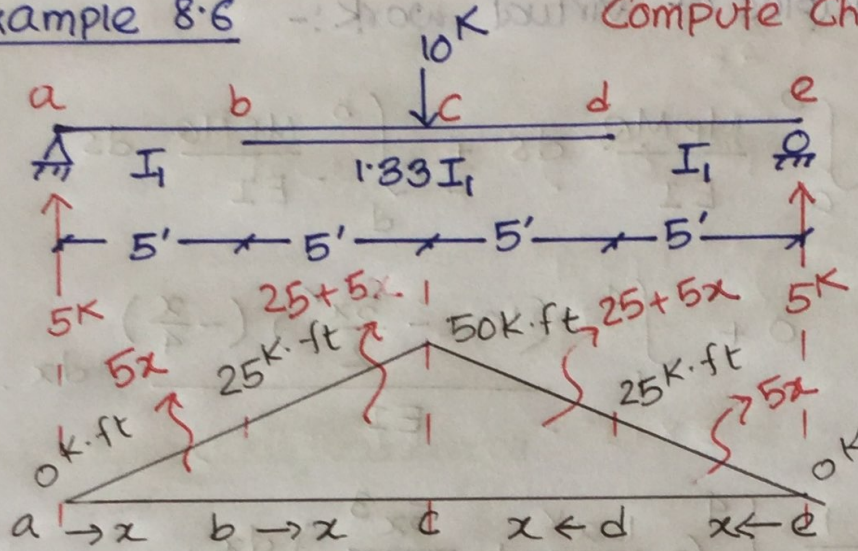 ample 8.6 Compute Ch
10K
a b c d e
I₁ 1.33I₁ I₁
5' 5' 5' 5'
5K 25+5x 50K.ft 25+5x 5K
5x 25K.ft 25K.ft 5x
0K.ft 0K
a →x b →x c x← d x← e